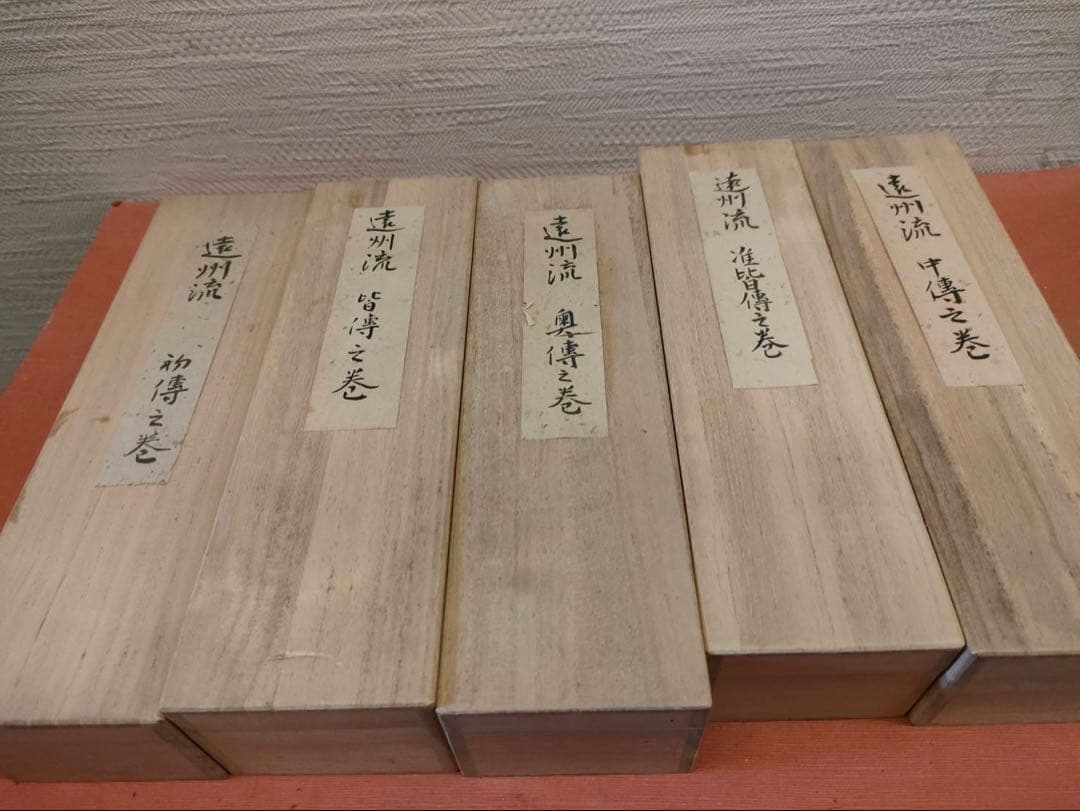 遠州流 初傳之巻
遠州流 皆傳之巻
遠州流 奥傳之巻
遠州流 准皆傳之巻
遠州流 中傳之巻